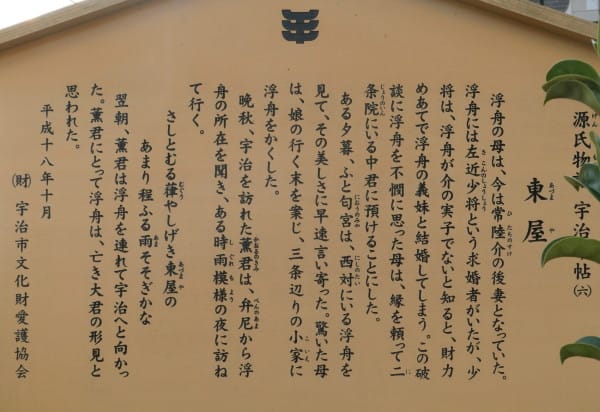 源氏物 宇治 帖 (六)
東屋
浮舟の母は、今は常陸介の後妻となっていた。
浮舟には左近少将という求婚者がいたが、少
将は、浮舟が介の実子でないと知ると、財力
めあてで浮舟の義妹と結婚してしまう。この破
談に浮舟を不憫に思った母は、縁を頼って二
条院にいる中君に預けることにした。
ある夕暮、ふと匂宮は、西対にいる浮舟を
見て、その美しさに早速言い寄った。驚いた母
は、娘の行く末を案じ、三条辺りの小家に
浮舟をかくした。
晩秋、宇治を訪れた薫君は、弁尼から浮
舟の所在を聞き、ある時雨模様の夜に訪ね
て行く。
さしとむる葎やしげき東屋の
あまり程ふる雨そそぎかな
翌朝、薫君は浮舟を連れて宇治へと向かっ
た。薫君にとって浮舟は、亡き大君の形見と
思われた。
平成十八年十月
(財)宇治市文化財愛護協会